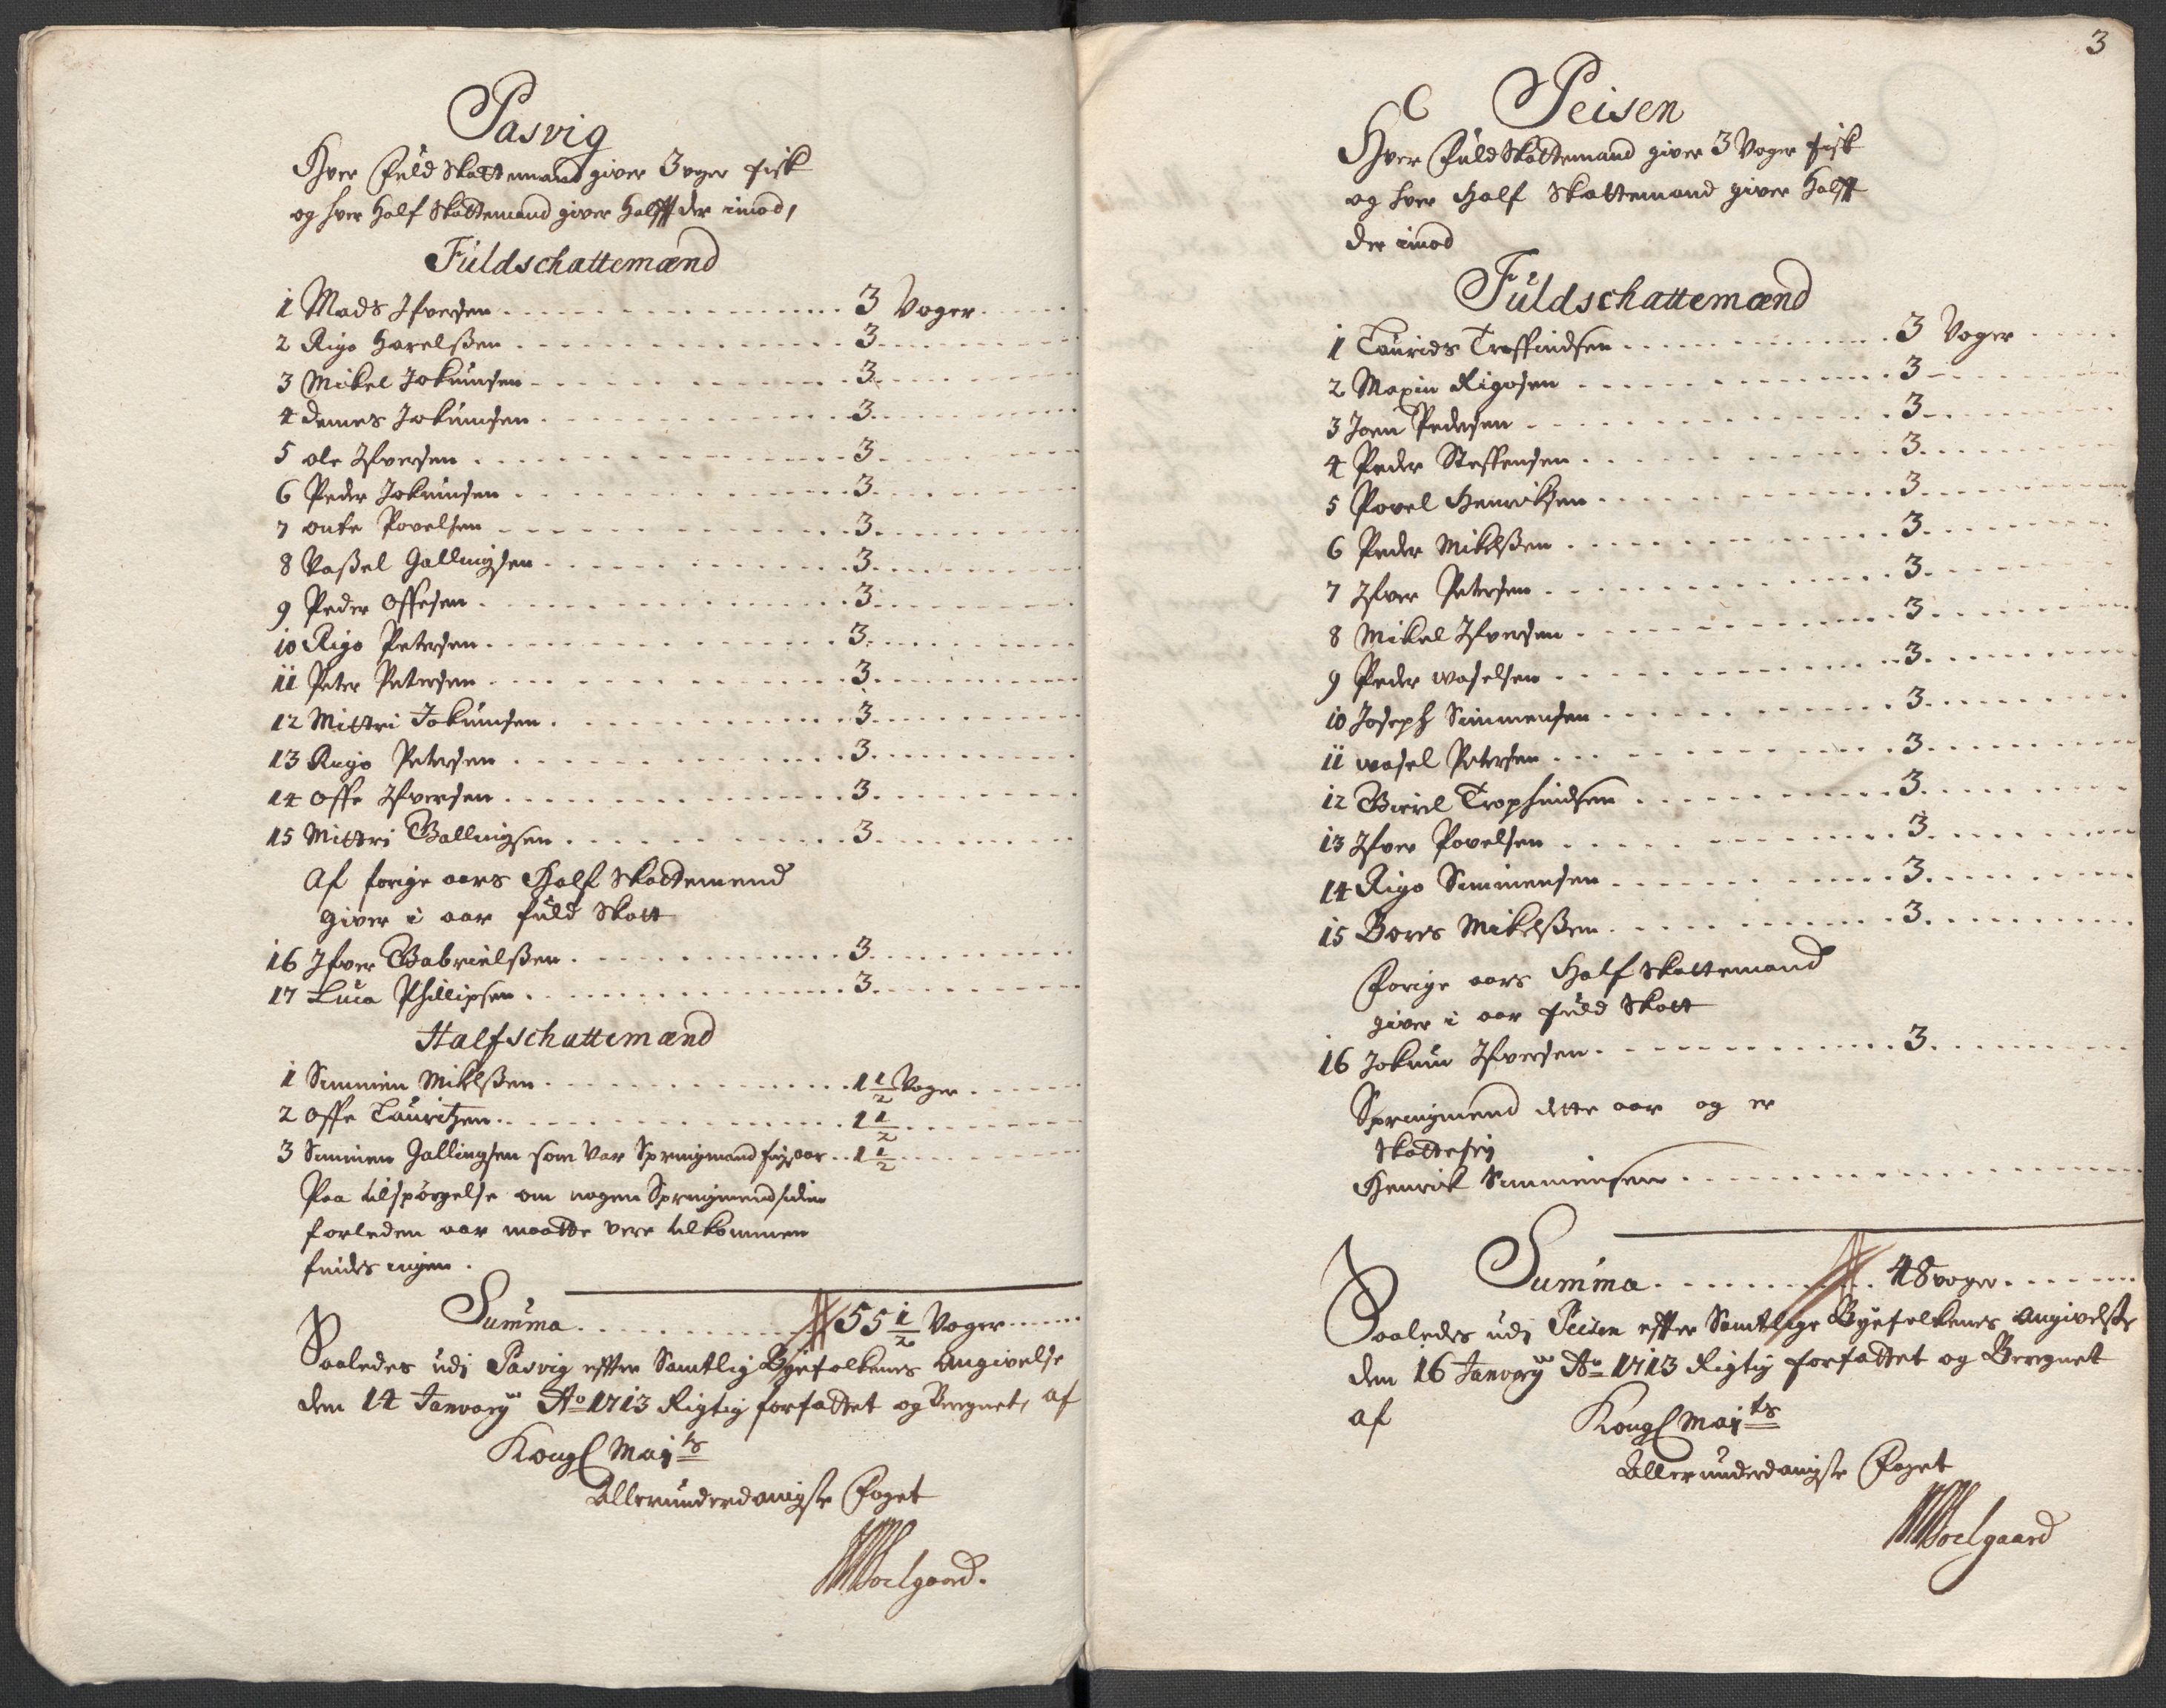 Pasvig
Hver Fuld Skattemand giver 3 voger fisk
og hver Half Skattemand giver Halfft der imod,
Fuldschattemænd
1 Mads Ifversen 3 Voger
2 Rigo Harelßen 3
3 Mikel Jokumsen 3
4 Demes Jokumsen 3
5 ole Ifversen 3
6 Peder Jokumsen 3
7 onte Povelsen 3
8 Vaßel Gallingsen 3
9 Peder Offesen 3
10 Rigo Petersen 3
11 Peter Petersen 3
12 Mittri Jokumsen 3
13 Rigo Petersen 3
14 Offe Ifversen 3
15 Mittri Gallingsen 3
Af forige aars Half Skattemend
giver i aar fuld Skatt
16 Ifver Gabrielßen 3
17 Luca Phillipsen 3
Halfschattemænd
1 Simmen Mikelßen 1 1/2 Voger
2 Offe Lauritzen 1 1/2
3 Simmen Gallingsen som var Springmand aar 1 1/2
Paa tilspørgelse om nogen Springmend siden
forleden aar maatte vere tilkommen
findes ingen.
Summa 55 1/2 Voger
Saaledes udi Pasvig effter Samtlig Byefolkenes Angivelse
den 14 January Ao 1713 Rigtig forfattet og Beregnet, af
Kongl Maj ts
Allerunderdanigste Foget
Soelgaard.
3
Peisen
Hver Fuld Skattemand giver 3 Voger fisk
og hver Half Skattemand giver Halfft
der imod
Fuldschattemænd
1 Laurids Troffindsen 3 Voger
2 Maxin Rigosen 3
3 Joen Pedersen 3
4 Peder Steffensen 3
5 Povel Henriksen 3
6 Peder Mikelßen 3
7 Ifver Petersen 3
8 Mikel Ifversen 3
9 Peder waselsen 3
10 Joseph Simmensen 3
11 wasel Petersen 3
12 Trophindsen 3
13 Ifver Povelsen 3
14 Rigo Simmensen 3
15 Bores Mikelßen 3
Forige aars Half Skattemand
giver i aar fuld Skatt
16 Jokum Ifversen 3
Springmend dette aar og er
Skattefrj
Henrik Simmensen
Summa 48 voger
Saaledes udi Peisen effter Samtlige Byefolkenes Angivelse
den 16 January Ao 1713 Rigtig forfattet og Beregnet
af
Kongl Maj ts
Allerunderdanigste Foget
Soelgaard